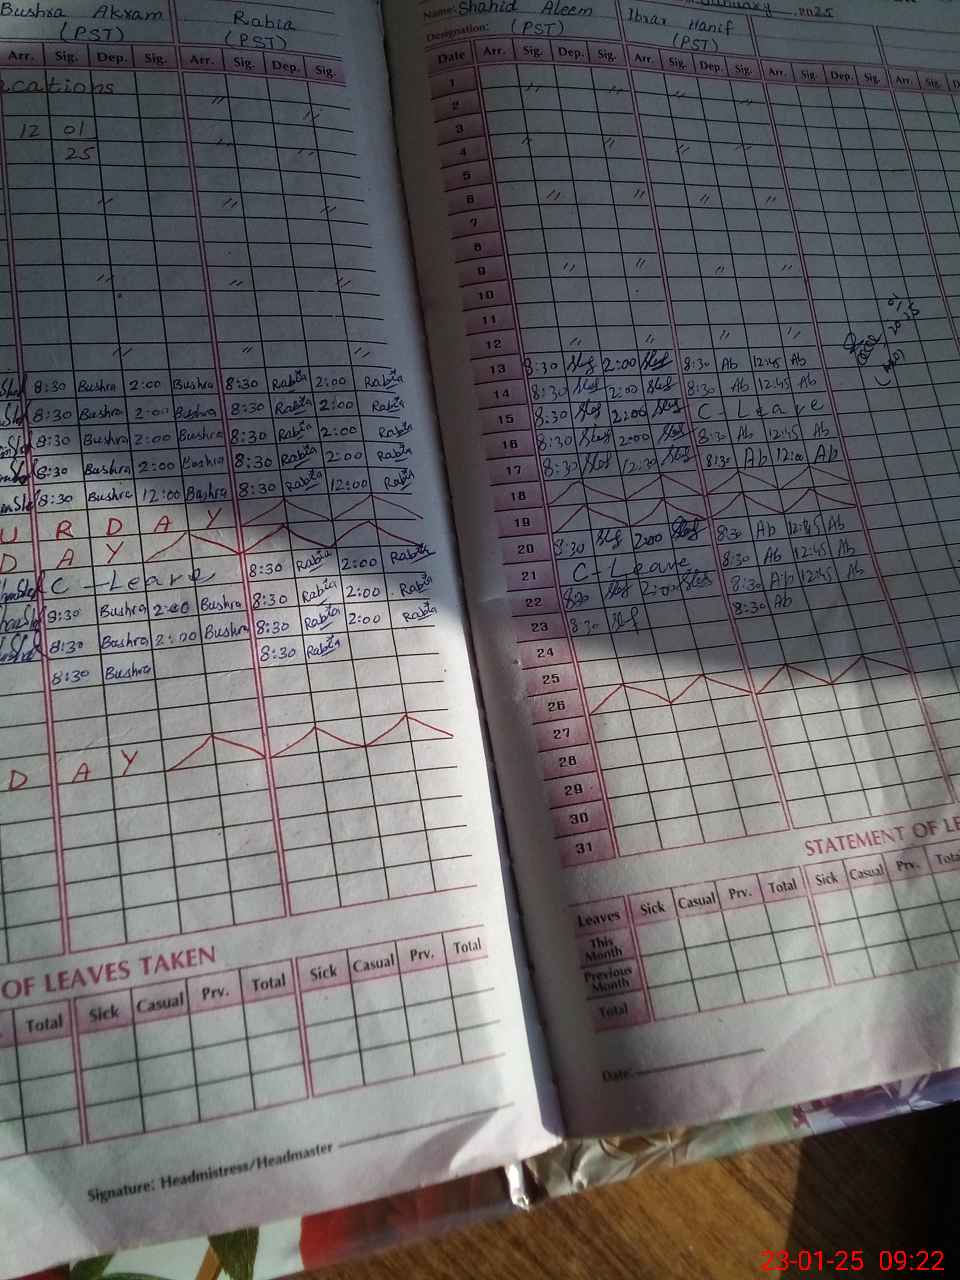 Bushra Akram Rabia
(PST) (PST)
Arr. Sig. Dep. Sig. Arr. Sig. Dep. Sig.
cations
12 01
25
8:30 Bushra 2:00 Bushra 8:30 Rabia 2:00 Rabia
8:30 Bushra 2:00 Bushra 8:30 Rabia 2:00 Rabia
8:30 Bushra 2:00 Bushra 8:30 Rabia 2:00 Rabia
8:30 Bushra 2:00 Bushra 8:30 Rabia 2:00 Rabia
8:30 Bushra 12:00 Bushra 8:30 Rabia 12:00 Rabia
U R D A Y
D A Y
C - Leave 8:30 Rabia 2:00 Rabia
8:30 Bushra 2:00 Bushra 8:30 Rabia 2:00 Rabia
8:30 Bushra 2:00 Bushra 8:30 Rabia 2:00 Rabia
8:30 Bushra 8:30 Rabia
D A Y
OF LEAVES TAKEN
Total Sick Casual Prv. Total Sick Casual Prv. Total
Signature: Headmistress/Headmaster
Name: Shahid Aleem Ibrar Hanif
Designation: (PST) (PST)
Date Arr. Sig. Dep. Sig. Arr. Sig. Dep. Sig. Arr. Sig. Dep. Sig. Arr. Sig.
1
2
3
4
5
6
7
8
9
10
11
12
13 8:30 2:00 8:30 Ab 12:45 Ab
14 8:30 2:00 8:30 Ab 12:45 Ab
15 8:30 2:00 C - Leave
16 8:30 2:00 8:30 Ab 12:45 Ab
17 8:30 12:30 8:30 Ab 12:00 Ab
18
19
20 8:30 2:00 8:30 Ab 12:45 Ab
21 C - Leave 8:30 Ab 12:45 Ab
22 8:30 2:00 8:30 Ab 12:45 Ab
23 8:30 8:30 Ab
24
25
26
27
28
29
30
31
STATEMENT OF LE
Leaves Sick Casual Prv. Total Sick Casual Prv. Total
This Month
Previous Month
Total
Date:
23-01-25 09:22